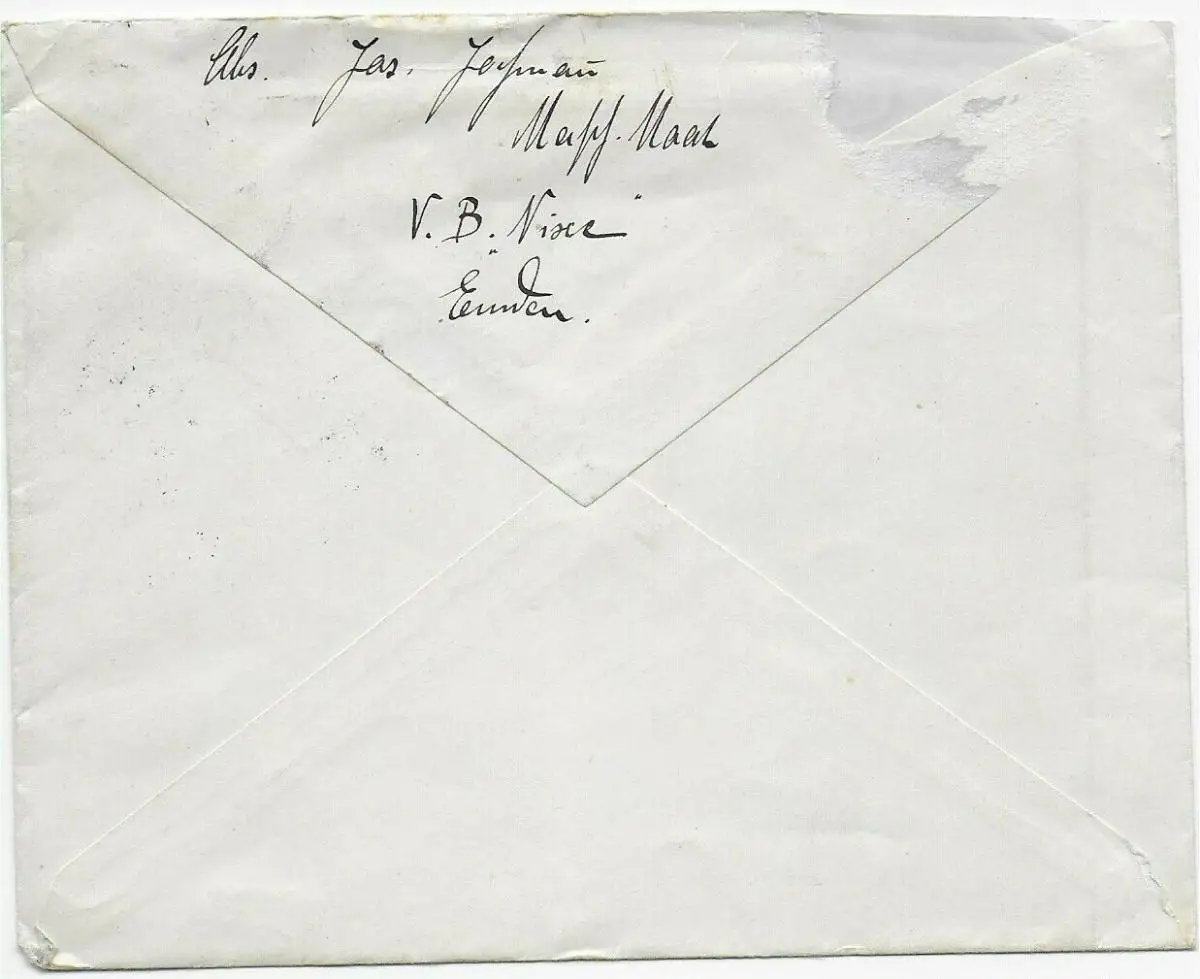 Abs. Jas.
Masch. Maat
V. B. "Nixe"
Emden.